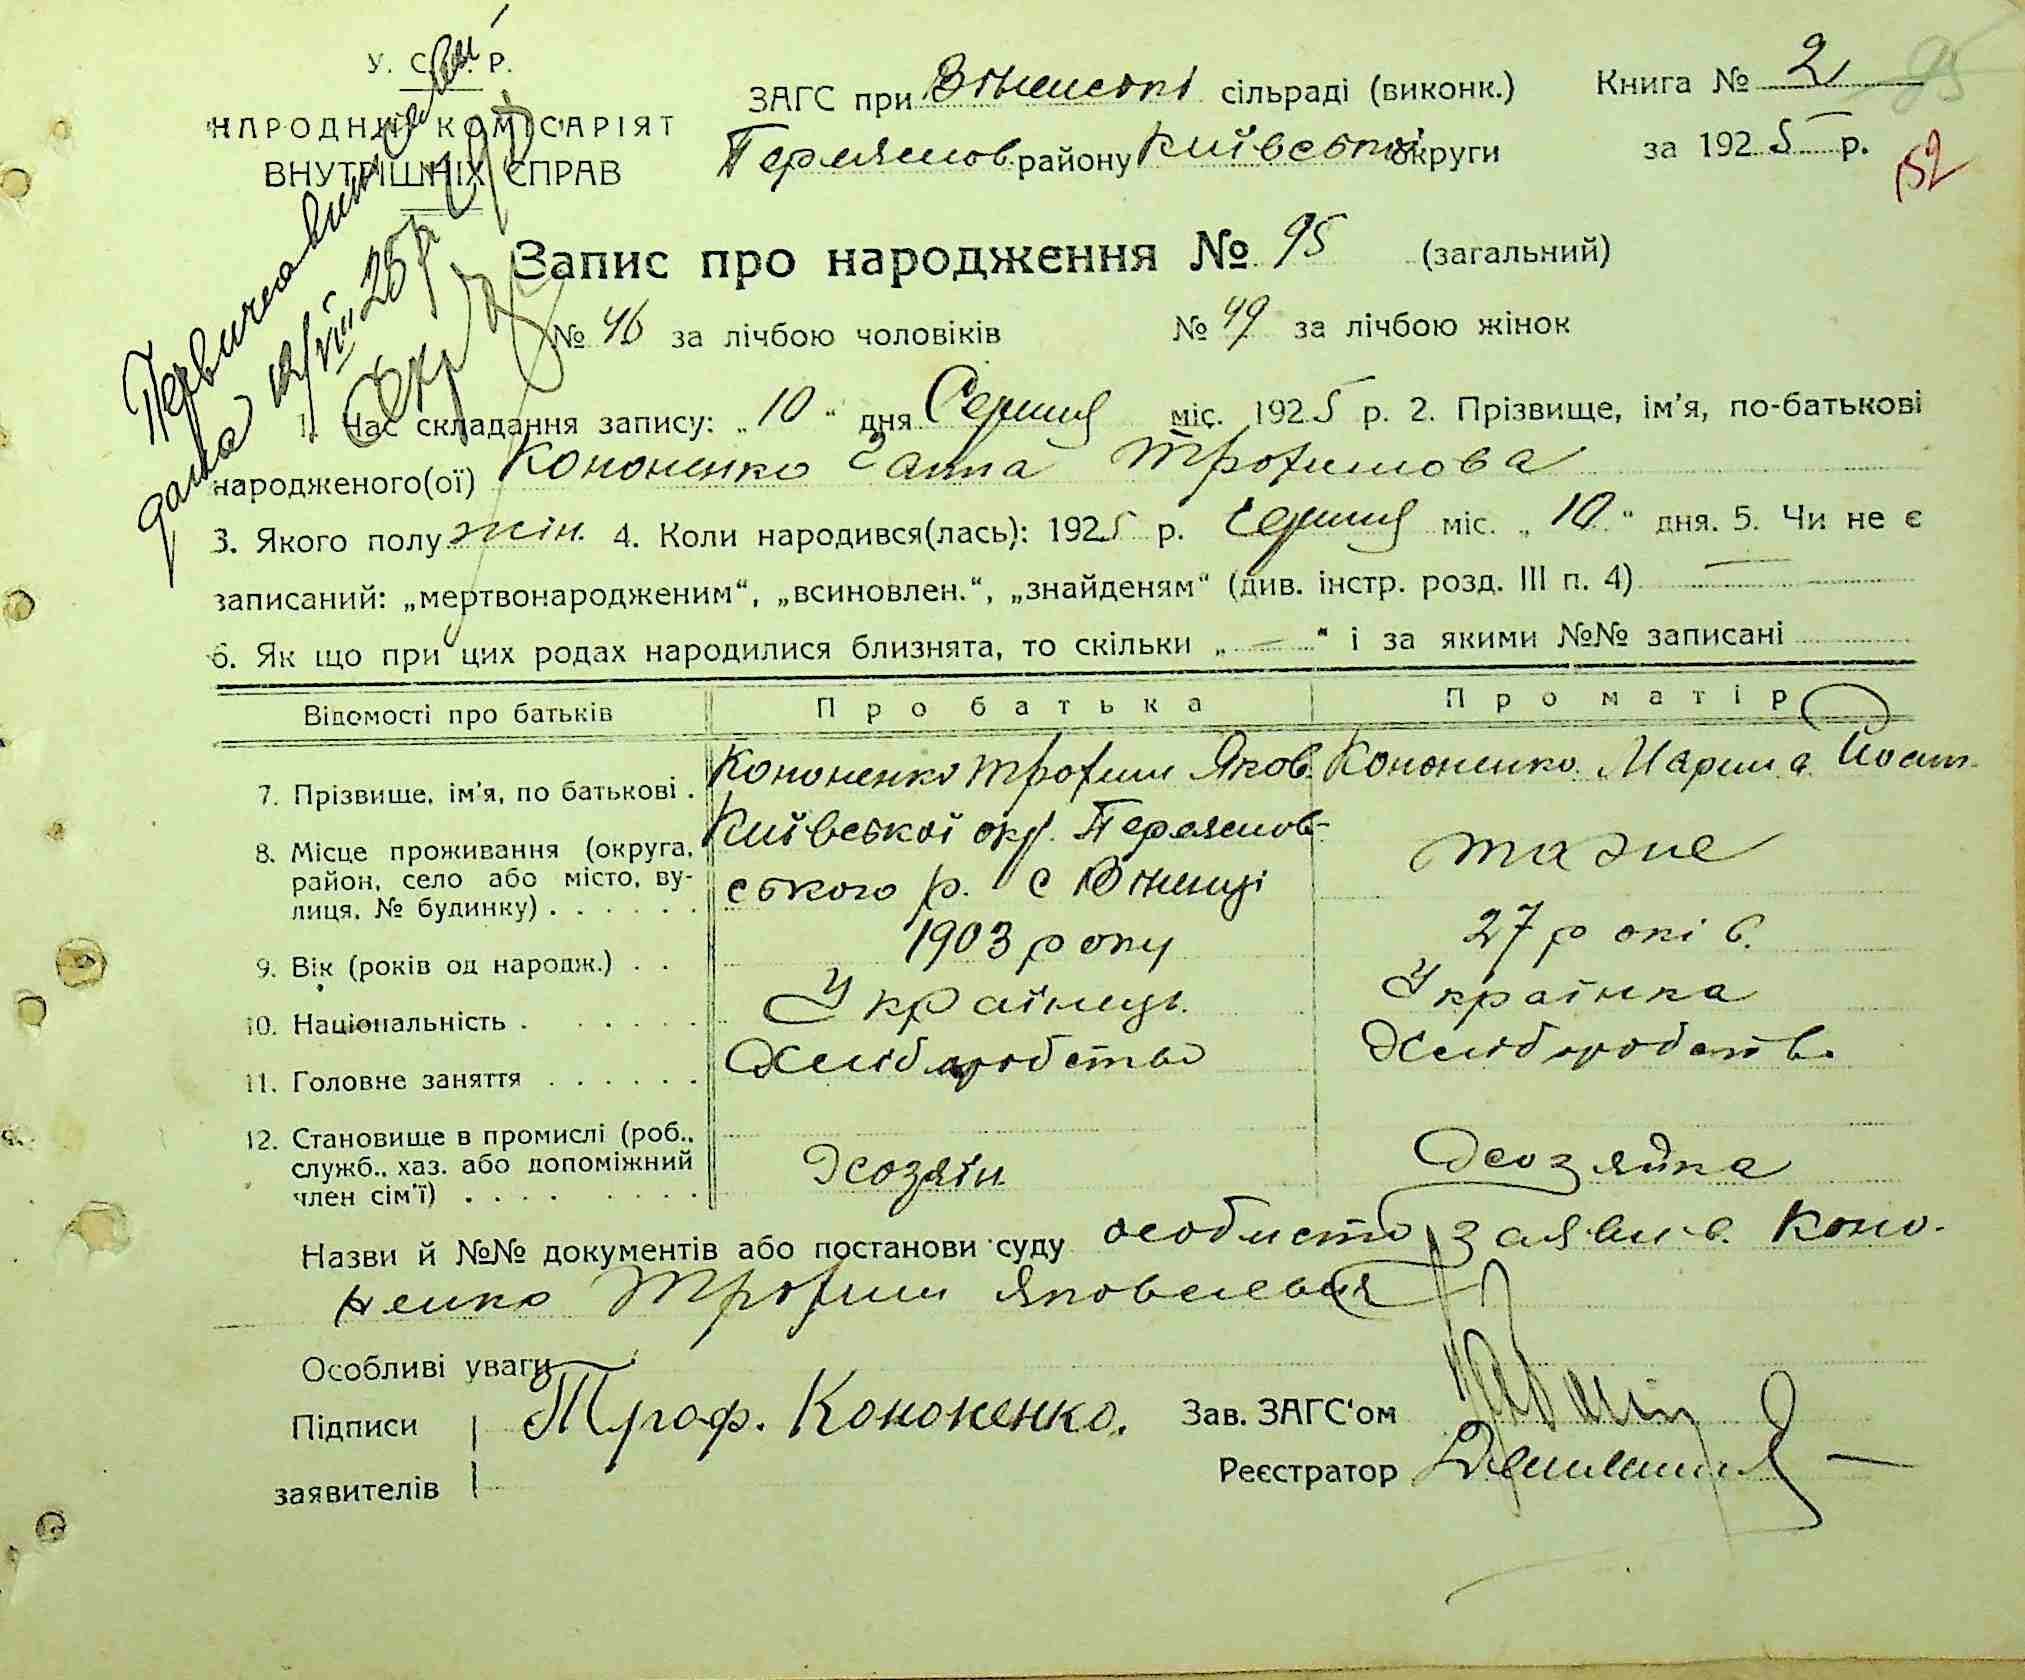 У. С. Р. Р.
НАРОДНИЙ КОМІСАРІЯТ
ВНУТРІШНІХ СПРАВ
ЗАГС при Вінинській сільраді (виконк.)
Книга № 2
95
Переяслов. району Київської округи
за 1925 р.
152
Запис про народження № 95 (загальний)
№ 46 за лічбою чоловіків № 49 за лічбою жінок
1. Час складання запису: „10“ дня Серпня міс. 1925 р. 2. Прізвище, ім'я, по-батькові
народженого(ої) Кононенко Ганна Трофимова
3. Якого полу жін. 4. Коли народився(лась): 1925 р. Серпня міс. „10“ дня. 5. Чи не є
записаний: „мертвонародженим“, „всиновлен.“, „знайденям“ (див. інстр. розд. III п. 4) —
6. Як що при цих родах народилися близнята, то скільки „—“ і за якими №№ записані
Відомості про батьків Про батька Про матір
7. Прізвище, ім'я, по батькові . Кононенко Трофим Яков. Кононенко Марина
8. Місце проживання (округа, район, село або місто, вулиця, № будинку) . . . . . .
Київської окр. Переяслов-
ського р. с
також
9. Вік (років од народж.) . . 1903 року 27 років.
10. Національність . . . . . . Українець Українка
11. Головне заняття . . . . . . Хліборобство Хліборобство
12. Становище в промислі (роб., служб., хаз. або допоміжний член сім'ї) . . . . . . . .
Хозяїн Хозяйка
Назви й №№ документів або постанови суду особисто заявив Коно-
ненко Трофим Яковлевич
Особливі уваги
Підписи Троф. Кононенко. Зав. ЗАГС'ом
заявителів Реєстратор